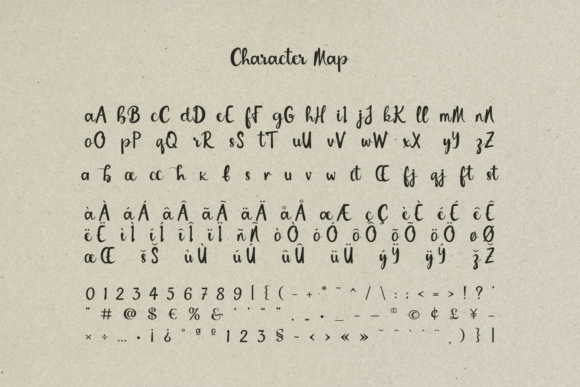 Character Map
aA bB cC dD eE fF gG hH iI jJ kK lL mM nN
oO pP qQ rR sS tT uU vV wW xX yY zZ
a b æ cc h k ß s r u v w ct Œ fj qj ft st
àÀ áÁ âÂ ãÃ äÄ åÅ æÆ çÇ èÈ éÉ êÊ
ëË ìÌ íÍ îÎ ïÏ ñÑ òÒ óÓ ôÔ õÕ öÖ øØ
œŒ šŠ ùÙ úÚ ûÛ üÜ ýÝ ÿŸ žŽ
0 1 2 3 4 5 6 7 8 9 | [ { ( - + * ¨ ^ / \ : ; < = > ! ? '
" # @ $ € % & ‘ ’ “ ” . „ • _ – — ® © ¢ £ ¥ -
× ÷ … · ¡ ¿ ° ª º ¹ ² ³ § - ‹ › « » , ) } ]